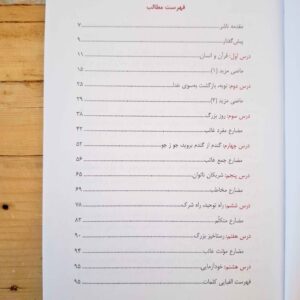 فهرست مطالب
مقدمه ناشر ۷
پیش‌گفتار ۹
درس اول: قرآن و انسان ۱۱
ماضی مزید (۱) ۱۵
درس دوم: توبه، بازگشت به‌سوی خدا ۲۵
ماضی مزید (۲) ۲۹
درس سوم: روز بزرگ ۳۸
مضارع مفرد غائب ۴۲
درس چهارم: گندم از گندم بروید، جو ز جو ۵۲
مضارع جمع غائب ۵۶
درس پنجم: شریکان ناتوان ۶۵
مضارع مخاطب ۶۹
درس ششم: راه توحید، راه شرک ۷۸
مضارع متکلّم ۸۳
درس هفتم: رستاخیز بزرگ ۹۰
مضارع مؤنث غائب ۹۴
درس هشتم: خودآزمایی ۹۵
فهرست الفبایی کلمات ۹۵